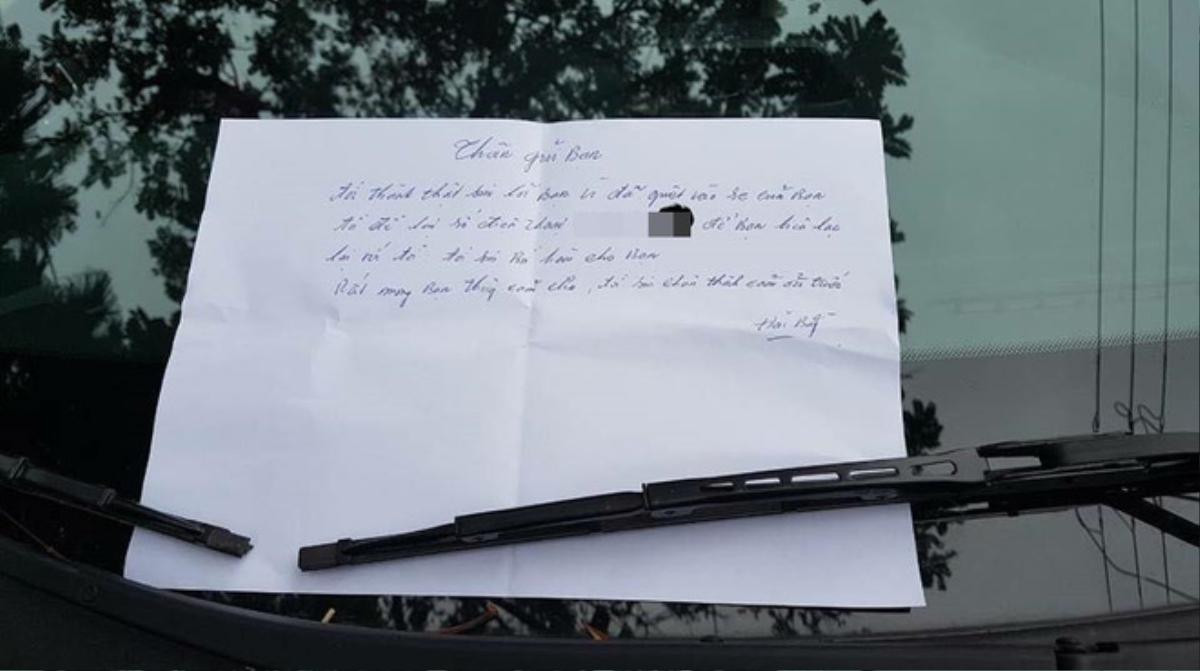 Thân gửi Bạn
Tôi thành thật xin lỗi Bạn vì đã quệt vào xe của Bạn
tôi để lại số điện thoại để Bạn liên lạc
lại với tôi tôi xin Bồi hoàn cho Bạn
Rất mong Bạn thông cảm cho, tôi xin chân thành cảm ơn trước